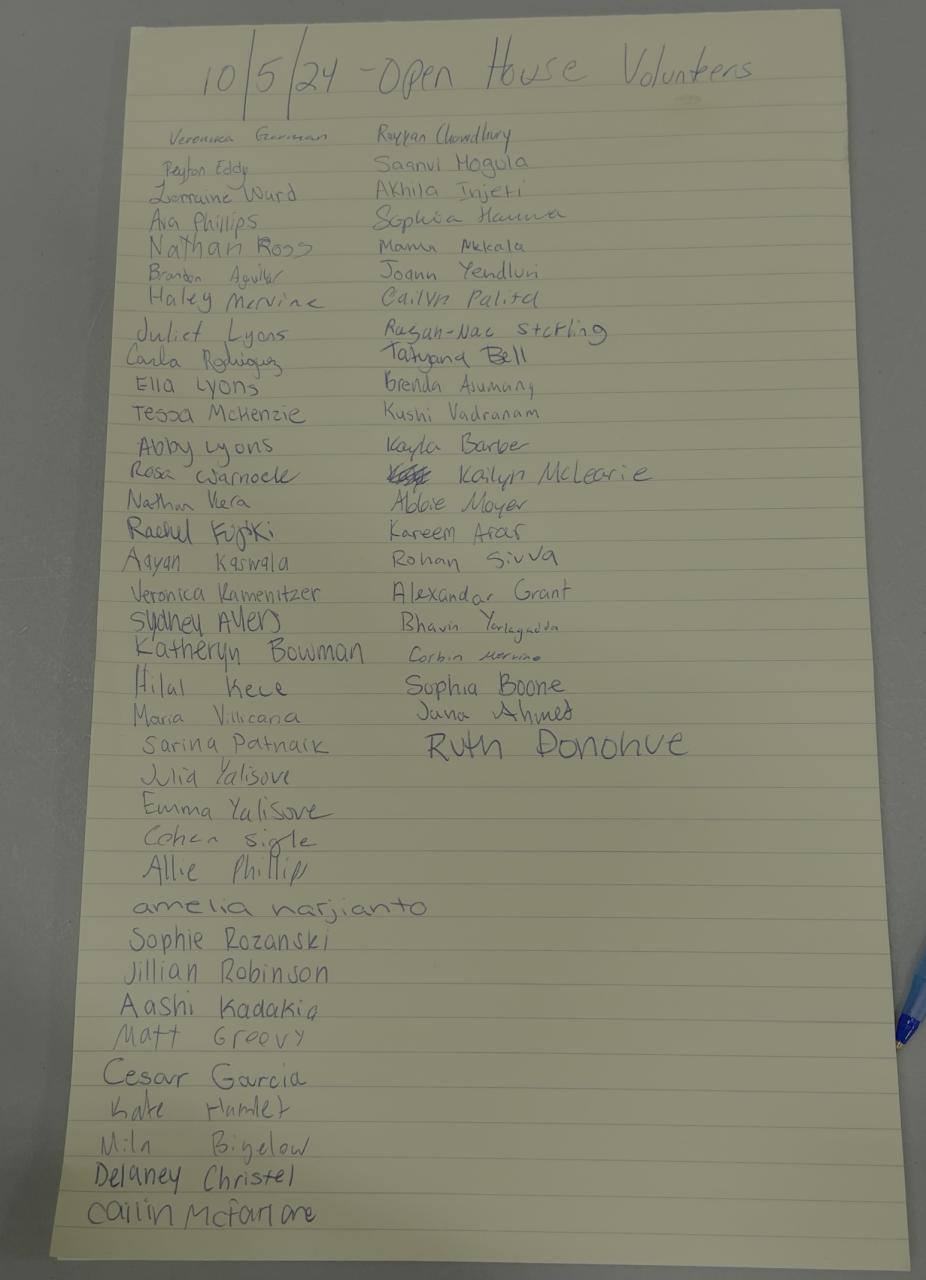 10/5/24 - Open House Volunteers
Veronica German
Peyton Eddy
Lorraine Ward
Ava Phillips
Nathan Ross
Brandon Aguilar
Haley Mervine
Juliet Lyons
Carla Rodriguez
Ella Lyons
Tessa McKenzie
Abby Lyons
Rosa Warnock
Nathan Vera
Rachel Fujiki
Aayan Kaswala
Veronica Kamenitzer
Sydney Ayers
Katheryn Bowman
Hilal Kece
Maria Villicana
Sarina Patnaik
Julia Yalisove
Emma Yalisove
Cohen Sigle
Allie Phillip
amelia narjianto
Sophie Rozanski
Jillian Robinson
Aashi Kadakia
Matt Groovy
Cesar Garcia
Kate Hamlet
Mila Bigelow
Delaney Christel
Cailin McFarlane
Rayyan Chowdhury
Saanvi Mogula
Akhila Injeti
Sophia Hanna
Joann Yendluri
Cailyn Palita
Sterling
Tatyana Bell
Brenda Asumang
Kushi Vadranam
Kayla Barber
Kailyn McLearie
Abbie Moyer
Kareem Arar
Rohan Sivva
Alexandar Grant
Bhavin Yarlagadda
Corbin Mervine
Sophia Boone
Jana Ahmed
Ruth Donohue